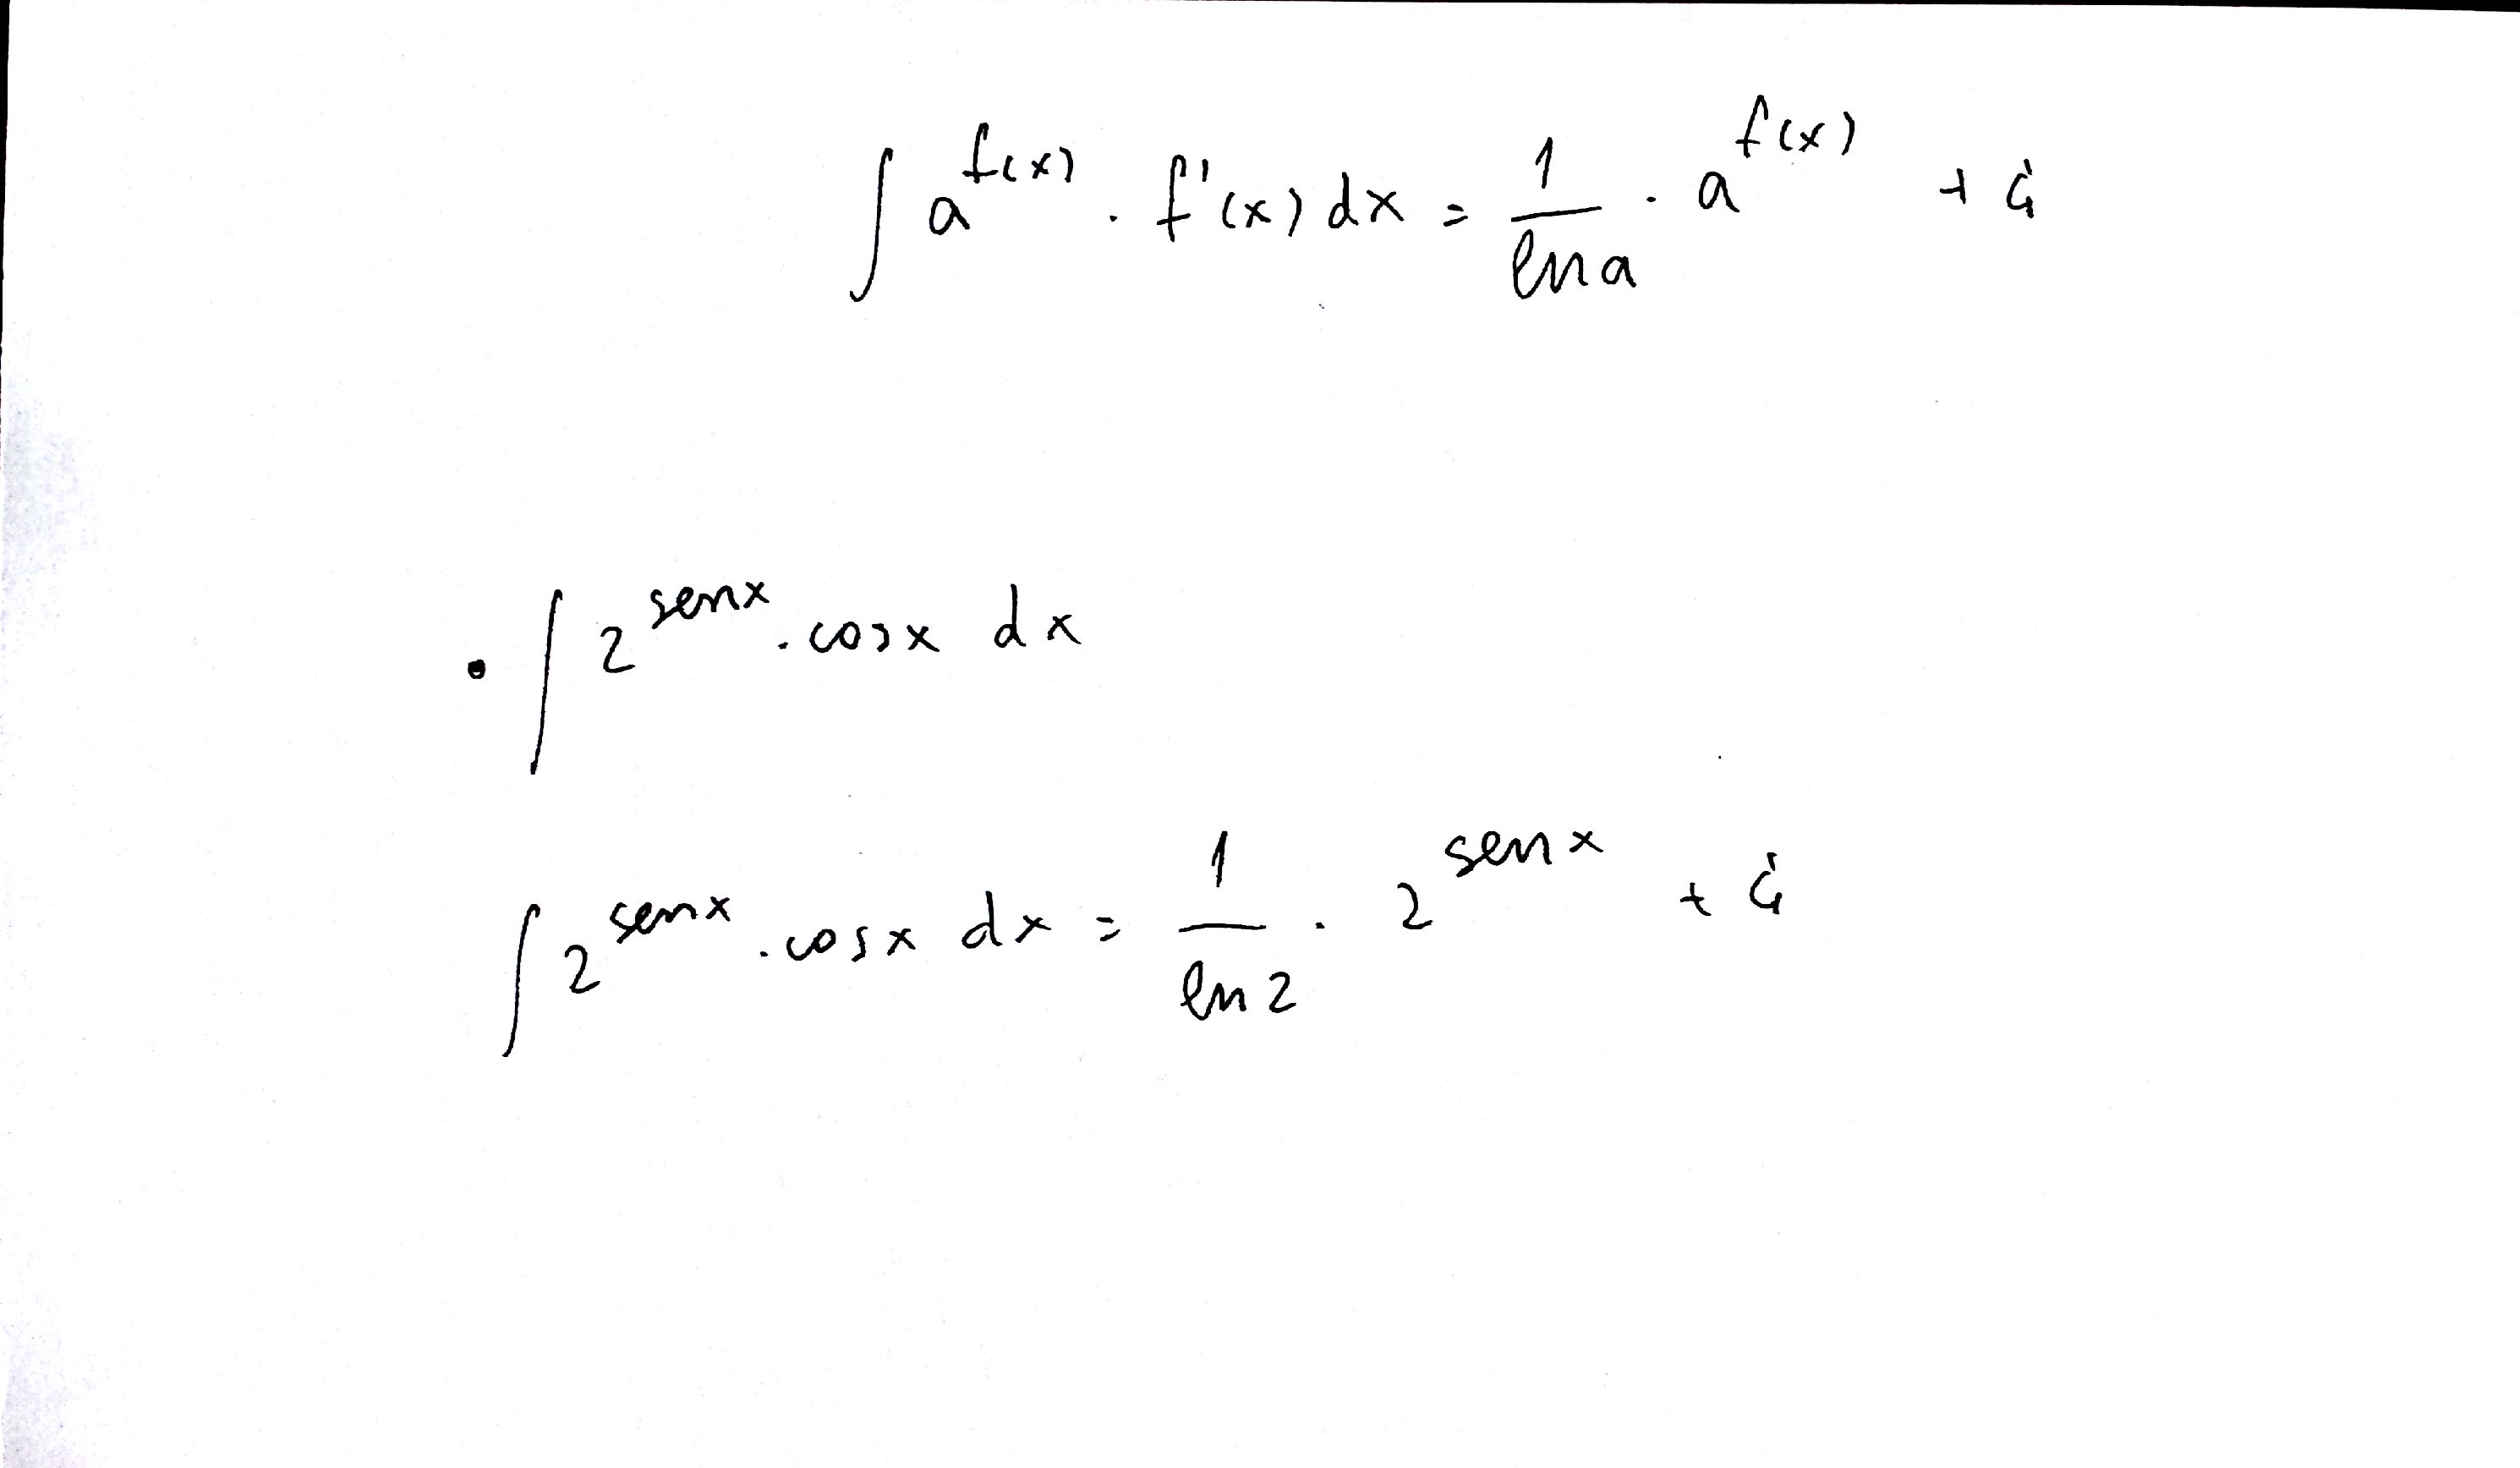 ∫ a^f(x) . f'(x) dx = 1/ln a . a^f(x) + C
• ∫ 2^senx . cosx dx
∫ 2^senx . cosx dx = 1/ln 2 . 2^senx + C